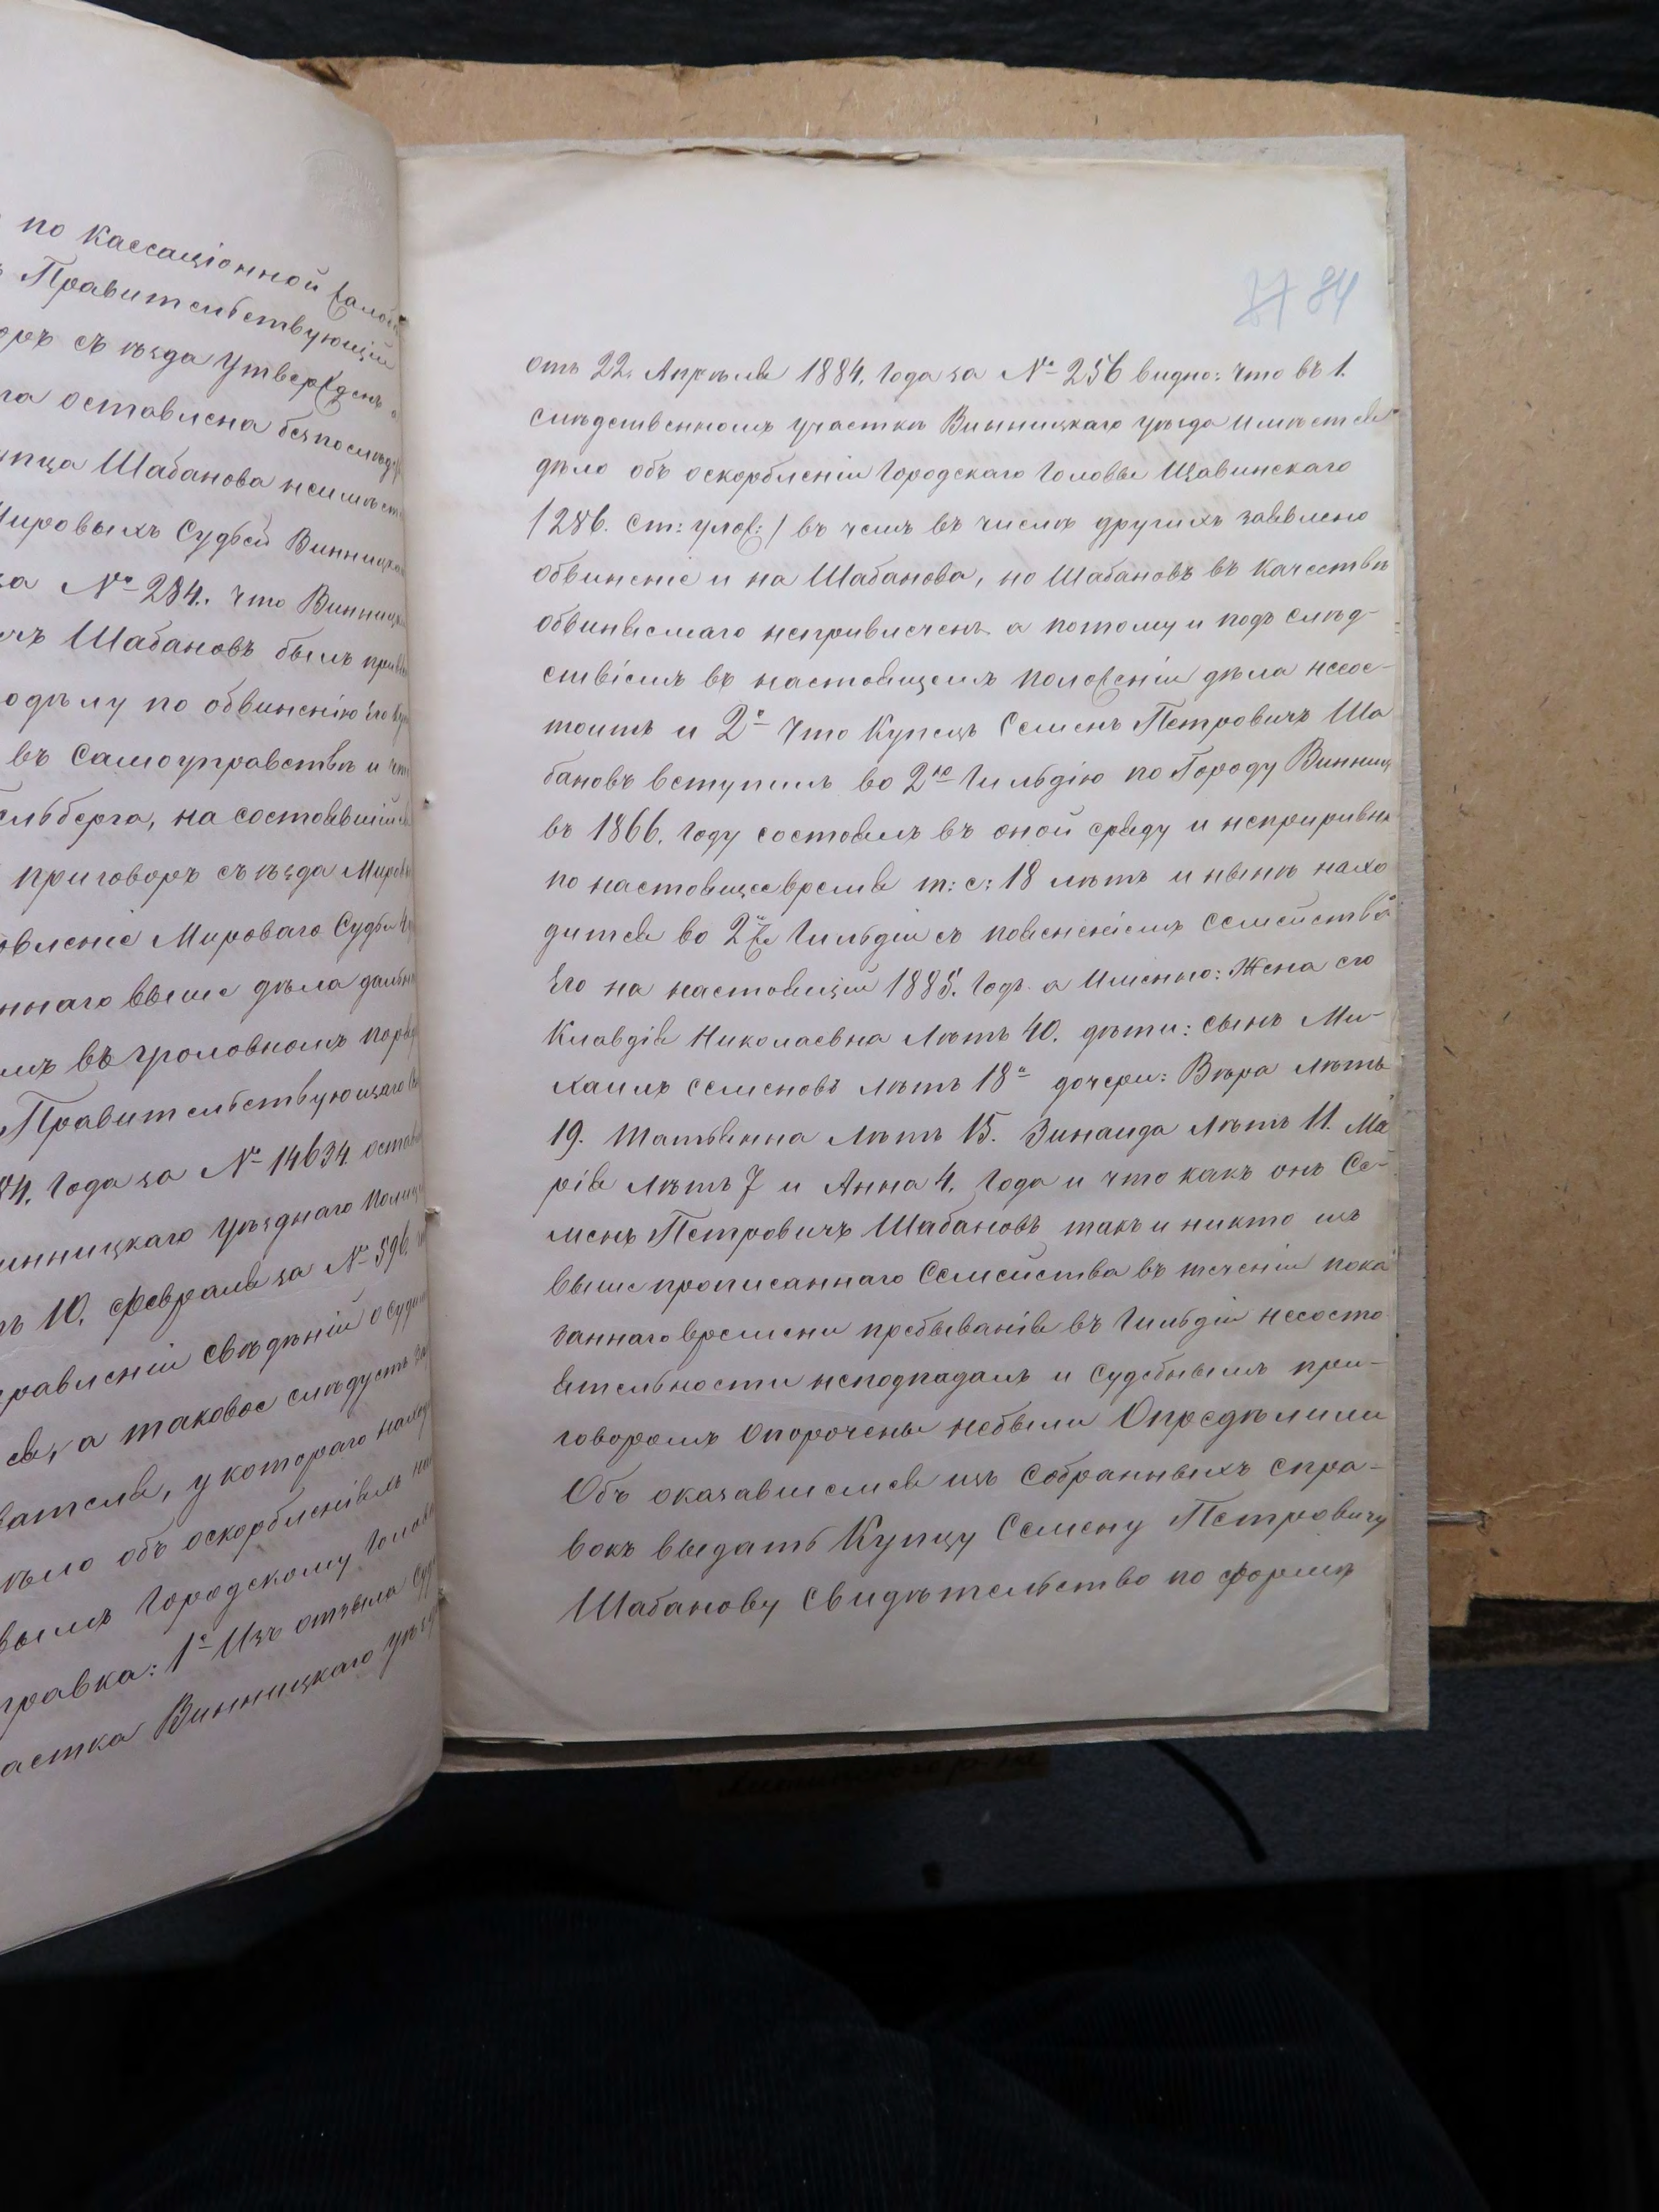 по Кассаціонной
Правительствующій
съѣзда Утвержденъ
оставлена безпослѣд
Шабанова неимѣет
Мировыхъ Судьей Винницка
за № 284. что Винниц
Шабановъ былъ прив
одѣлу по обвиненію Его
въ Самоуправствѣ и что
ельберга, на состоявшійся
приговоръ съѣзда Миров
овленіе Мироваго Судьи
ннаго выше дѣла даль
въ уголовномъ поряд
Правительствующаго
84. Года за № 14634 остав
инницкаго Уѣзднаго Полиц
10. Февраля за № 596.
правленіи свѣдѣній о суди
ся, а таковое слѣдуетъ
вателя, у котораго наход
ѣло объ оскорбленіяхъ
Городскому Голов
правка: 1е Изъ отзыва
астка Винницкаго уѣз
37 84
отъ 22. Апрѣля 1884. Года за № 256 видно: что въ 1.
слѣдственномъ участкѣ Винницкаго уѣзда имѣется
дѣло объ оскорбленіи Городскаго Головы Щавинскаго
/286. Ст: улож:/ въ чемъ въ числѣ другихъ заявлено
обвиненіе и на Шабанова, но Шабановъ въ качествѣ
обвиняемаго непривлеченъ а потому и подъ слѣд-
ствіемъ въ настоящемъ положеніи дѣла несос-
тоитъ и 2е Что Купецъ Семенъ Петровичъ Ша
бановъ вступилъ во 2ю Гильдію по Городу Винниц
въ 1866. Году состоялъ въ оной сряду и неприривно
по настоящее время т: е: 18 лѣтъ и нынѣ нахо
дится во 2й Гильдіи съ поясненіемъ Семейства
Его на настоящій 1885. Годъ а Именно: Жена его
Клавдія Николаевна Лѣтъ 40. дѣти: сынъ Ми-
хаилъ Семеновъ лѣтъ 18ъ дочери: Вѣра лѣтъ
19. Татьянна Лѣтъ 15. Зинаида Лѣтъ 11. Ма
рія Лѣтъ 7 и Анна 4. Года и что какъ онъ Се-
менъ Петровичъ Шабановъ такъ и никто изъ
выше прописаннаго Семейства въ теченіи пока
заннаго времени пребыванія въ Гильдіи несосто
ятельности неподпадалъ и Судебнымъ при-
говоромъ Опорочены небыли Опредѣлили
Объ оказавшемся изъ Собранныхъ спра-
вокъ выдать Купцу Семену Петровичу
Шабанову Свидѣтельство по формѣ